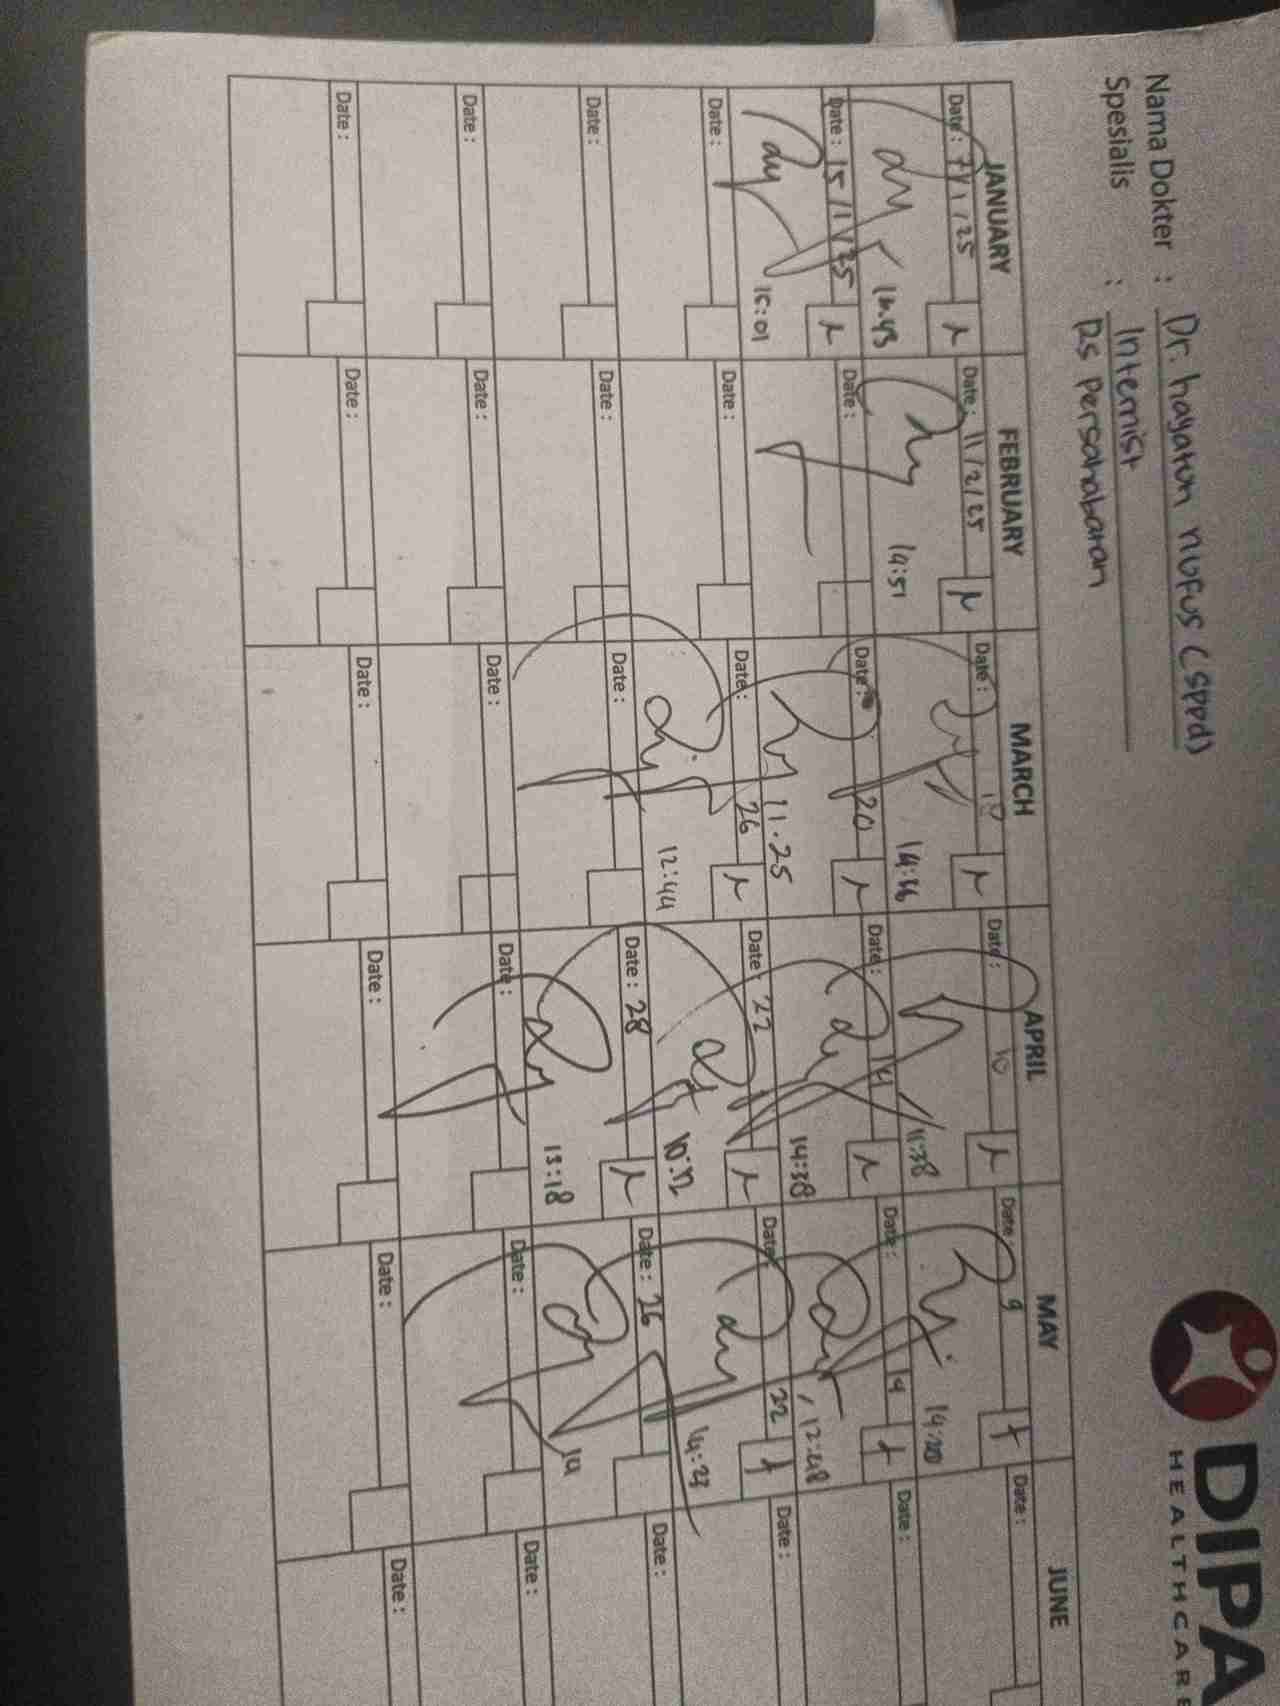 DIPA
HEALTHCARE
Nama Dokter : Dr. hayatun nufus (sppd)
Spesialis : Internist
RS Persahabatan
JANUARY FEBRUARY MARCH APRIL MAY JUNE
Date : 7/1/25 Date : 11/2/25 Date : 10 Date : 10 Date : 9 Date :
14.43 14:51 11:38 14:20
Date : 15/1/25 Date : Date : 20 Date : 14 Date : 19 Date :
15:01 11.25 14:38 12:48
Date : Date : Date : 26 Date : 22 Date : 22 Date :
12:44 14:23
Date : Date : Date : Date : 28 Date : 26 Date :
13:18 14
Date : Date : Date : Date : Date : Date :
Date : Date : Date : Date : Date : Date :